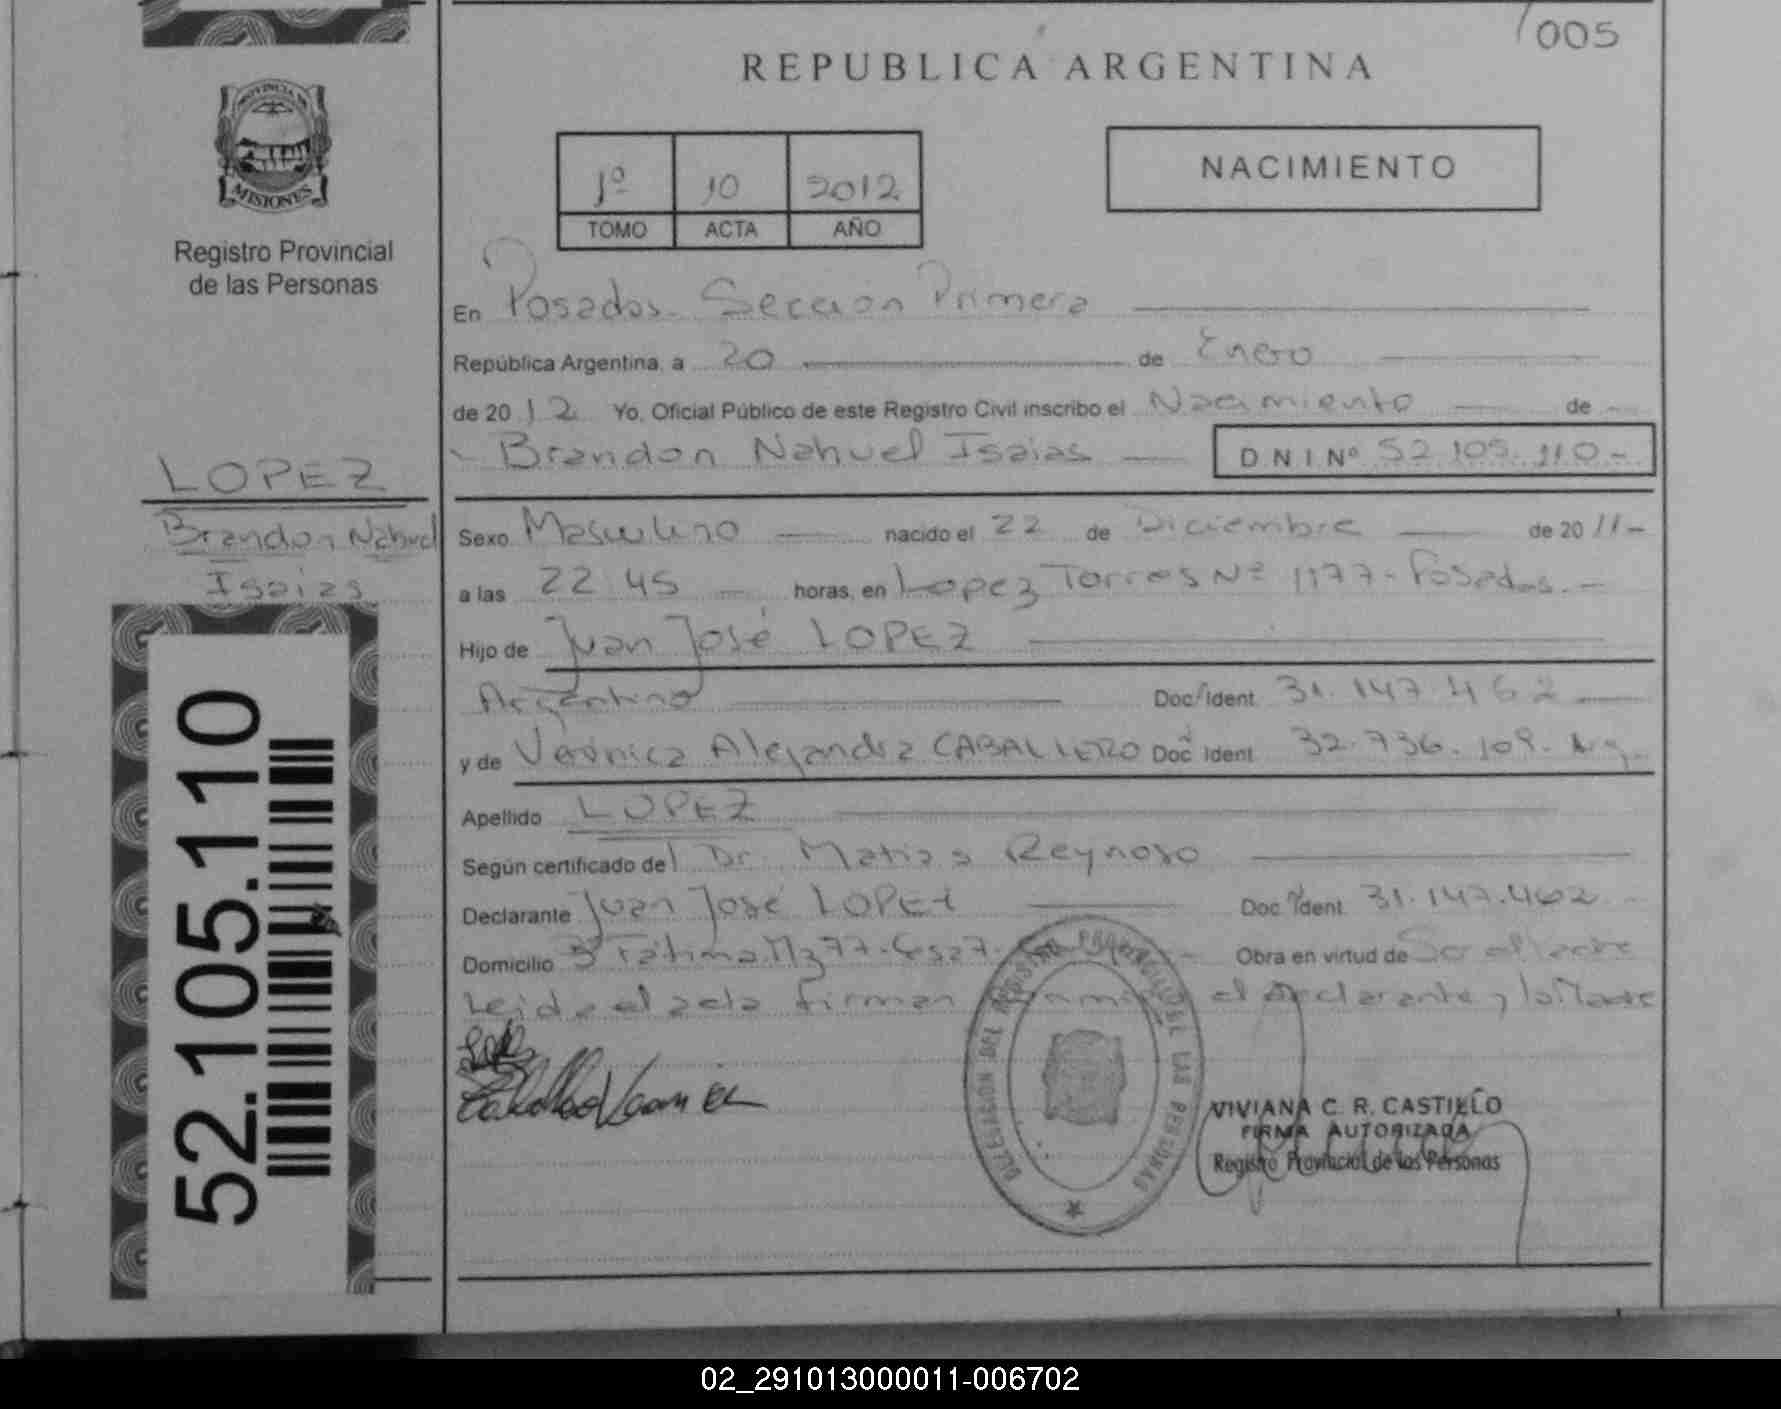 005
REPUBLICA ARGENTINA
PROVINCIA DE
MISIONES
Registro Provincial
de las Personas
1º 10 2012
TOMO ACTA AÑO
NACIMIENTO
En Posadas - Sección Primera
República Argentina, a 20 de Enero
de 2012 Yo, Oficial Público de este Registro Civil inscribo el Nacimiento de
Brandon Nahuel Isaias DNI Nº 52.105.110-
LOPEZ
Brandon Nahuel
Isaias
52.105.110
Sexo Masculino nacido el 22 de Diciembre de 2011-
a las 22:45 horas, en Lopez Torres Nº 1177 - Posadas.-
Hijo de Juan José LOPEZ
Argentino Doc. Ident. 31.147.462
y de Verónica Alejandra CABALLERO Doc. Ident. 32.736.109. Arg.
Apellido LOPEZ
Según certificado del Dr. Matias Reynoso
Declarante Juan José LOPEZ Doc. Ident. 31.147.462
Domicilio Bº Fátima Mz 77- Casa 7- Obra en virtud de
Leida el acta firman el declarante y la Madre
DELEGACION DEL REGISTRO PROVINCIAL DE LAS PERSONAS
VIVIANA C. R. CASTILLO
FIRMA AUTORIZADA
Registro Provincial de las Personas
02_291013000011-006702